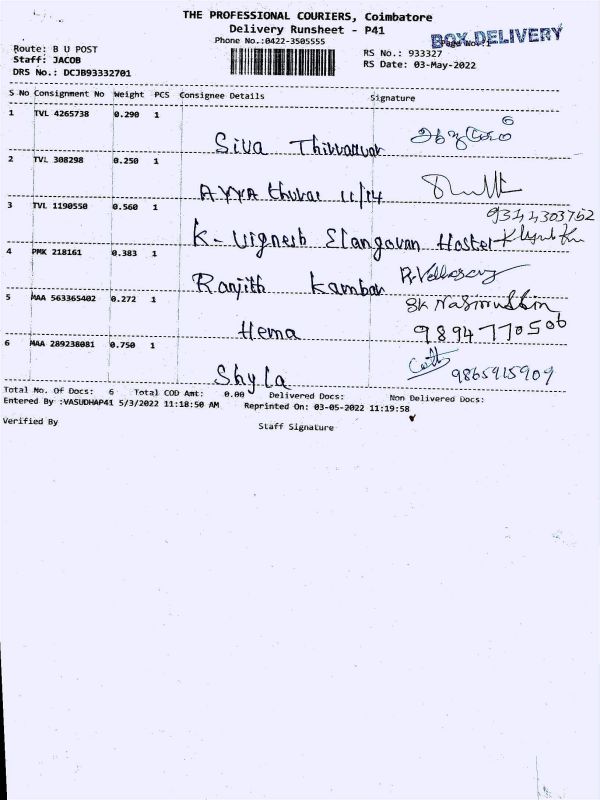 THE PROFESSIONAL COURIERS, Coimbatore
Delivery Runsheet - P41
Phone No.:0422-3505555
BOX DELIVERY
Route: B U POST
Staff: JACOB
DRS No.: DCJB93332701
RS No.: 933327
RS Date: 03-May-2022
S No Consignment No Weight PCS Consignee Details Signature
1 TVL 4265738 0.290 1
Siva Thiruvalluvar
6
2 TVL 308298 0.250 1
AYYA thurai 11/14
3 TVL 1190550 0.560 1
K. Vignesh Elangovan Hostel
4 PMK 218161 0.383 1
Ranjith Kamban
5 MAA 563365402 0.272 1
Hema
9894770506
6 MAA 289238081 0.750 1
Shyla
9865915909
Total No. Of Docs: 6 Total COD Amt: 0.00 Delivered Docs: Non Delivered Docs:
Entered By :VASUDHAP41 5/3/2022 11:18:50 AM Reprinted On: 03-05-2022 11:19:58
Verified By
Staff Signature